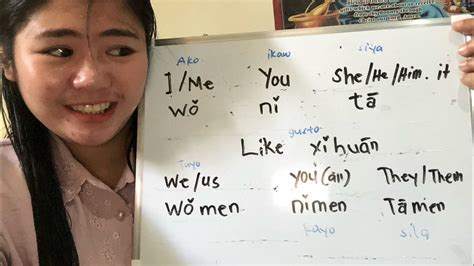 Ako ikaw siya
I/Me You She/He/Him. it
wǒ nǐ tā
gusto
Like xǐhuān
Tayo
We/us you(all) They/Them
wǒmen nǐmen Tāmen
kayo sila